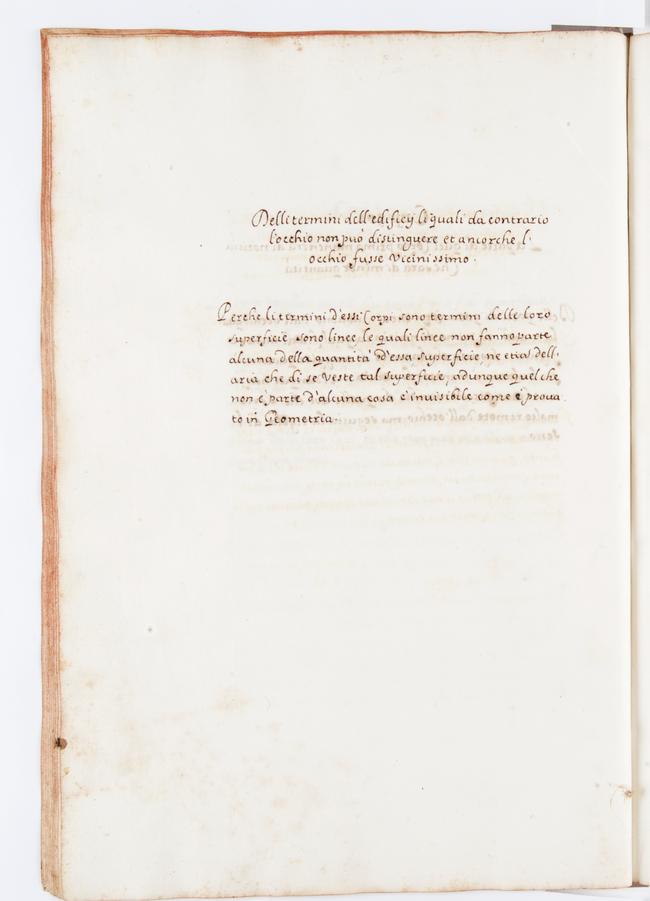 Delli termini dell'edificij li quali da contrario
l'occhio non può distinguere et ancorche l'
occhio fusse Vicinissimo.
Perche li termini d'essi Corpi sono termini delle loro
superficie sono linee le quali linee non fanno parte
alcuna della quantità d'essa superficie, ne etia dell'
aria che di se veste tal superficie, adunque quel che
non è parte d'alcuna cosa è invisibile come è prova
to in Geometria.